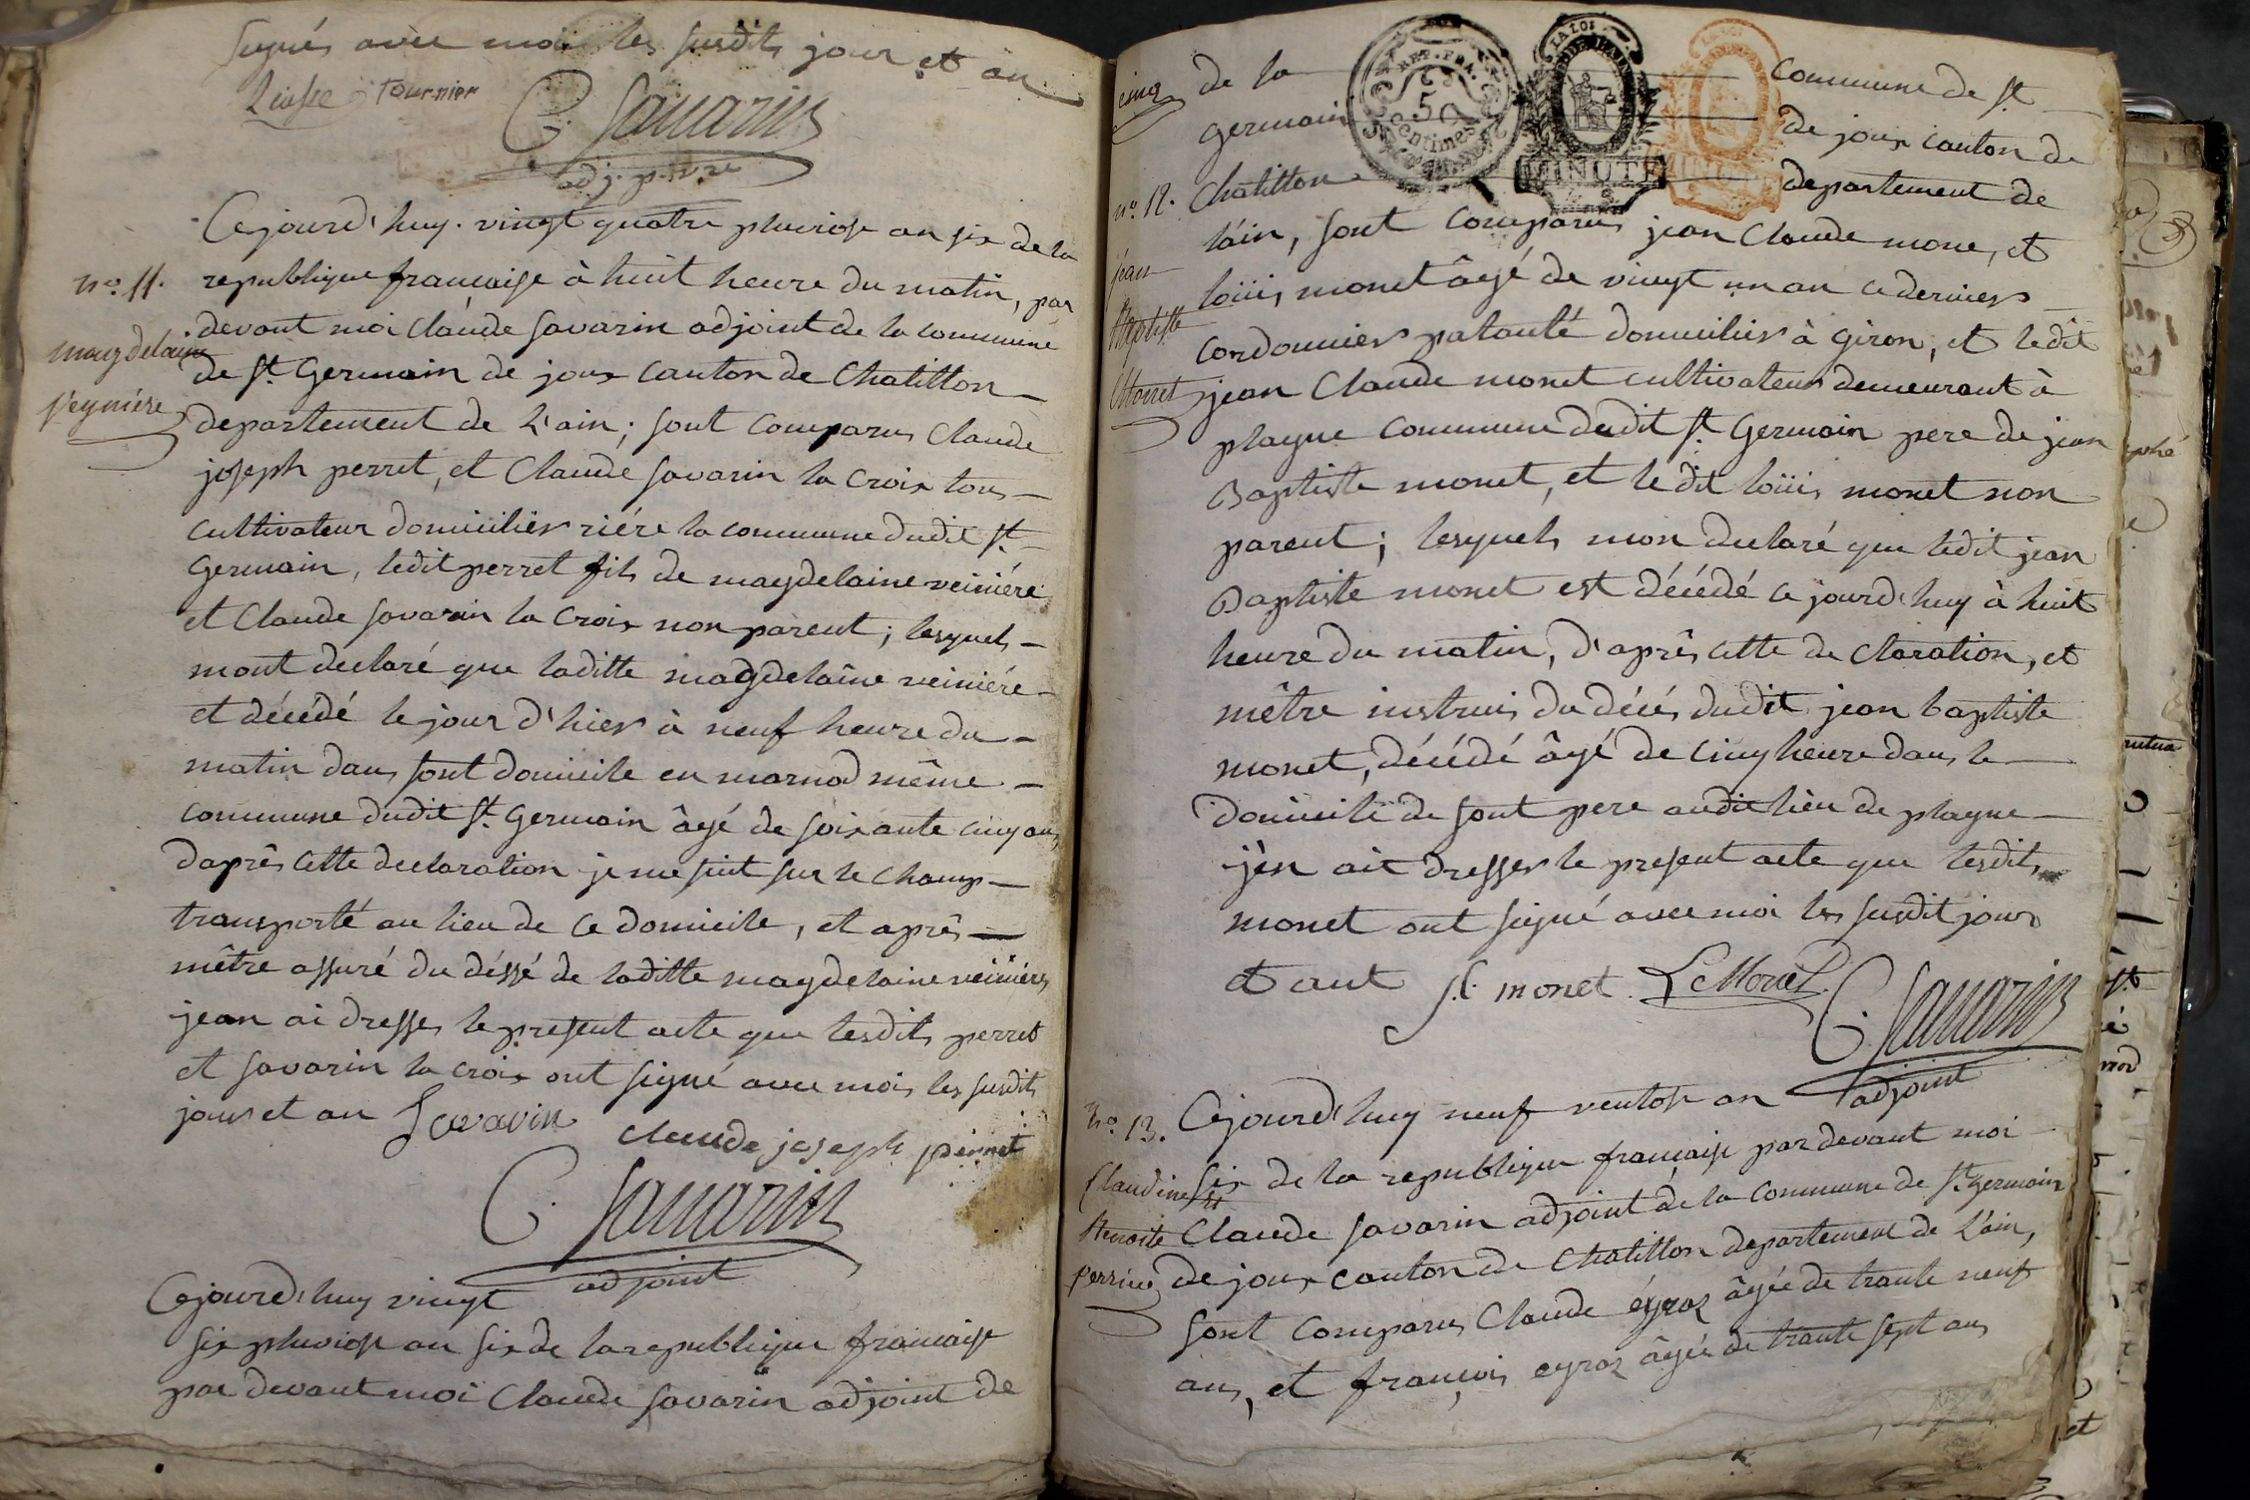 signés avec moi les susdits jour et an
Liasse Tournier
C. Savarin
adj. p.
Cejourd'huy vingt quatre pluviose an six de la
nº 11.
republique française à huit heure du matin, par
devant moi Claude Savarin adjoint de la commune
magdelaine
de St. Germain de joux canton de Chatillon
Veyniére
departement de L'ain; sont comparus Claude
joseph perret, et Claude Savarin la Croix tous
cultivateur domicilies riére la commune dudit St.
Germain, ledit perret fils de magdelaine veiniére
et Claude Savarin la Croix non parent; lesquels
mont declaré que laditte magdelaine veiniére
et décédé le jour d'hier à neuf heure du
matin dans sont domicile en marnod même
commune dudit St. Germain âgé de soixante cinq ans,
daprês cette declaration je me suit sur le champ
transporté au lieu de ce domicile, et aprês
mêtre assuré du déssé de laditte magdelaine veiniére,
jean ai dresses le present acte que lesdits perret
et Savarin la croix ont signé avec moi, les susdits
jour et an Savavin
Claude joseph perret
C. Savarin
adjoint
Cejourd'huy vingt
six pluviose an six de la republique française
par devant moi Claude Savarin adjoint de
cinq
de la commune de St.
REP. FRA.
50
centimes
LA LOI
MINUTE
germain de joux canton de
nº 12.
Chatillon departement de
láin, sont comparus jean Claude mone, et
jean
loüis monet âgé de vingt un an ce derniers
Baptiste
cordonniers patanté domicilies à giron, et ledit
Monet
jean Claude monet cultivateur demeurant à
plagne commune dudit St. Germain pere de jean
Baptiste monet, et le dit loüis monet non
parent; lesquels mon declaré que ledit jean
Baptiste monet est décédé ce jourd'huy à huit
heure du matin, d'aprês cette de claration, et
mêtre instruis du décés dudit jean baptiste
monet, décédé âgé de cinq heure dans le
domicile de sont pere audit lieu de plagne
j'én ait dresser le present acte que lesdits
monet ont signé avec moi les susdit jour
et ant j.C. monet L Monet C. Savarin
adjoint
nº 13.
Cejourd'huy neuf ventose an
six de la republique française par devant moi
Claudine
Claude Savarin adjoint de la commune de St. germain
Benoite
de joux canton de Chatillon departement de L'ain,
perrin
sont comparus Claude éyraz âgée de trante neuf
ans, et françois eyraz âgée de trante sept ans